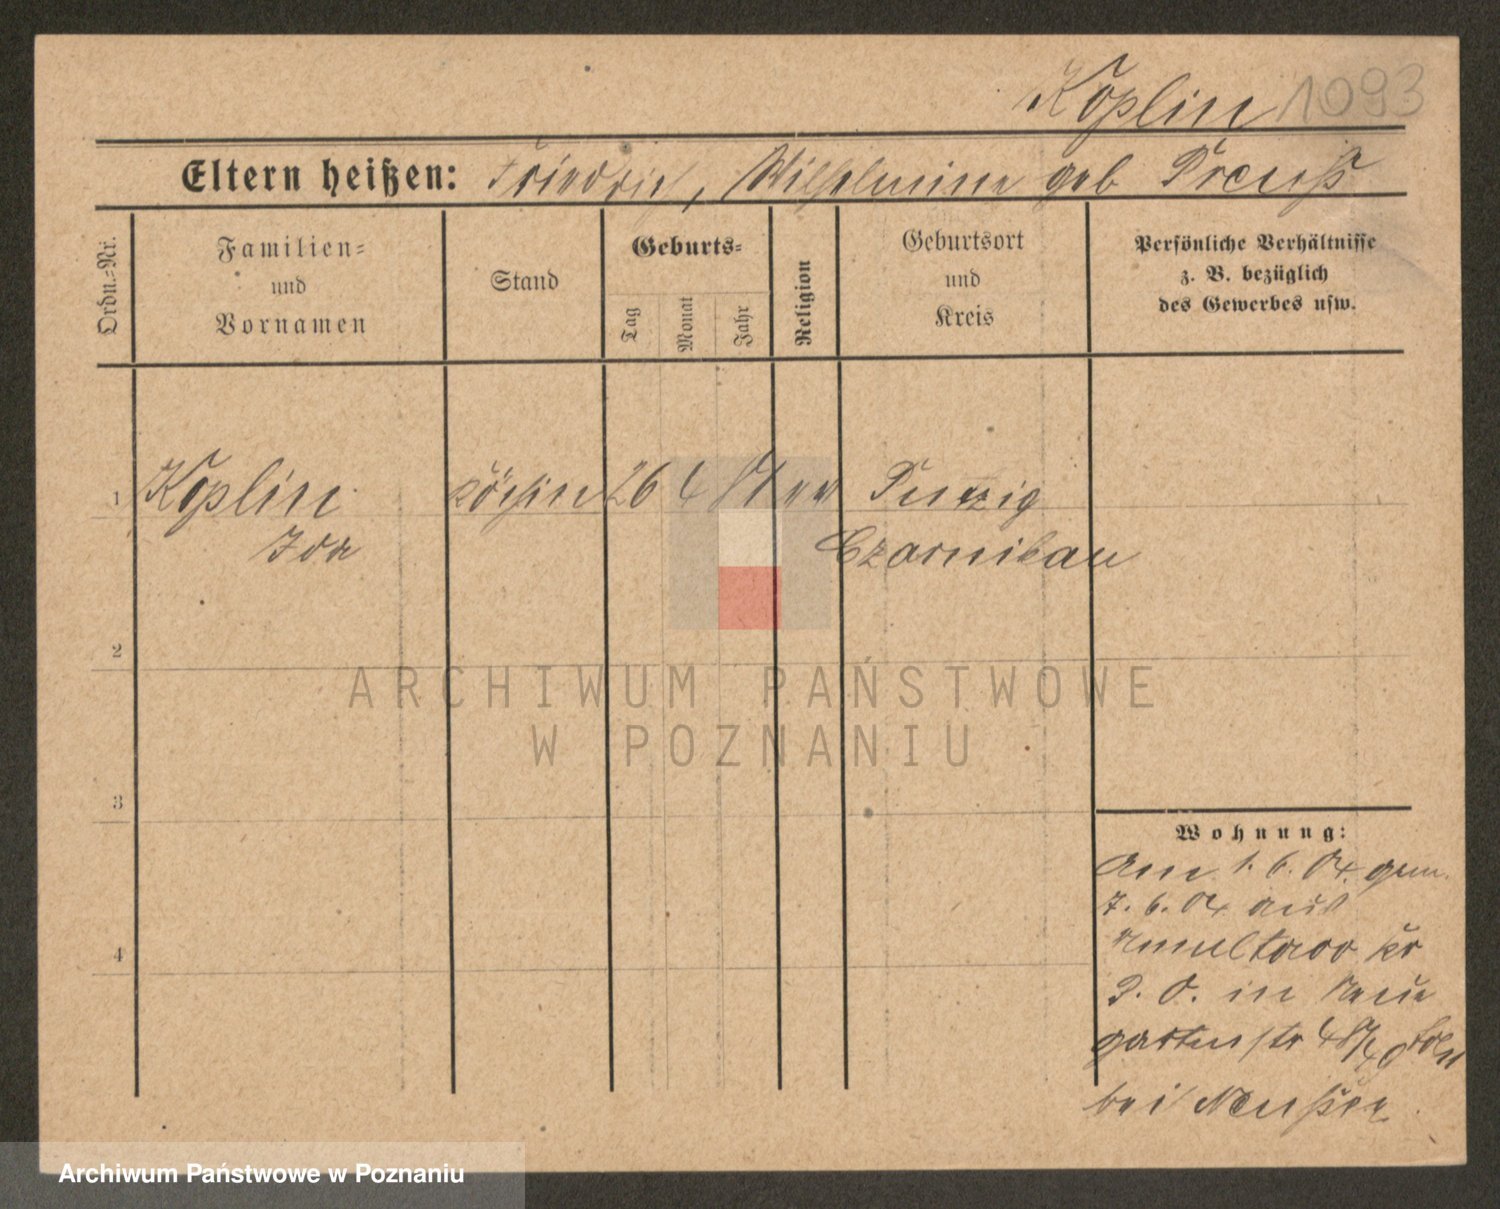 Köplin 1093
Eltern heißen: Friedrich, Wilhelmine geb Preuß
Ordn.-Nr.
Familien-
und
Vornamen
Stand
Geburts-
Tag
Monat
Jahr
Religion
Geburtsort
und
Kreis
Persönliche Verhältnisse
z. B. bezüglich
des Gewerbes usw.
1 Köplin Köchin 26 4
Ida Czarnikau
2
3
4
Wohnung:
Am 1. 6. 04. gem.
7. 6. 04 aus
P. O. in
gartenstr
bei
ARCHIWUM PAŃSTWOWE
W POZNANIU
Archiwum Państwowe w Poznaniu